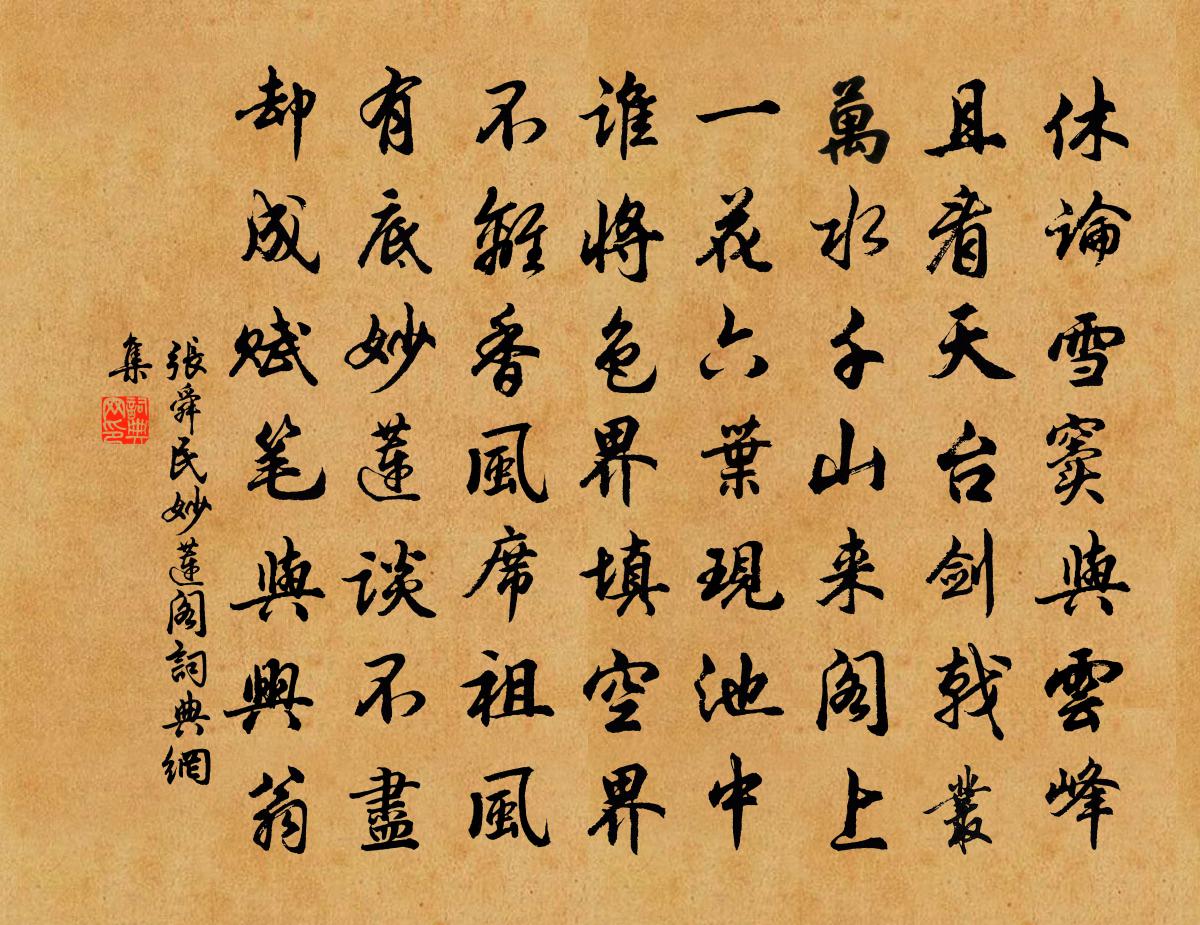 休論雪窦與雲峰
且看天台劍戟叢
萬水千山来阁上
一花六葉現池中
谁將色界填空界
不離香風席祖風
有底妙蓮谈不盡
却成赋笔與興翁
張舜民妙蓮阁詞典網
集
詞典
网印